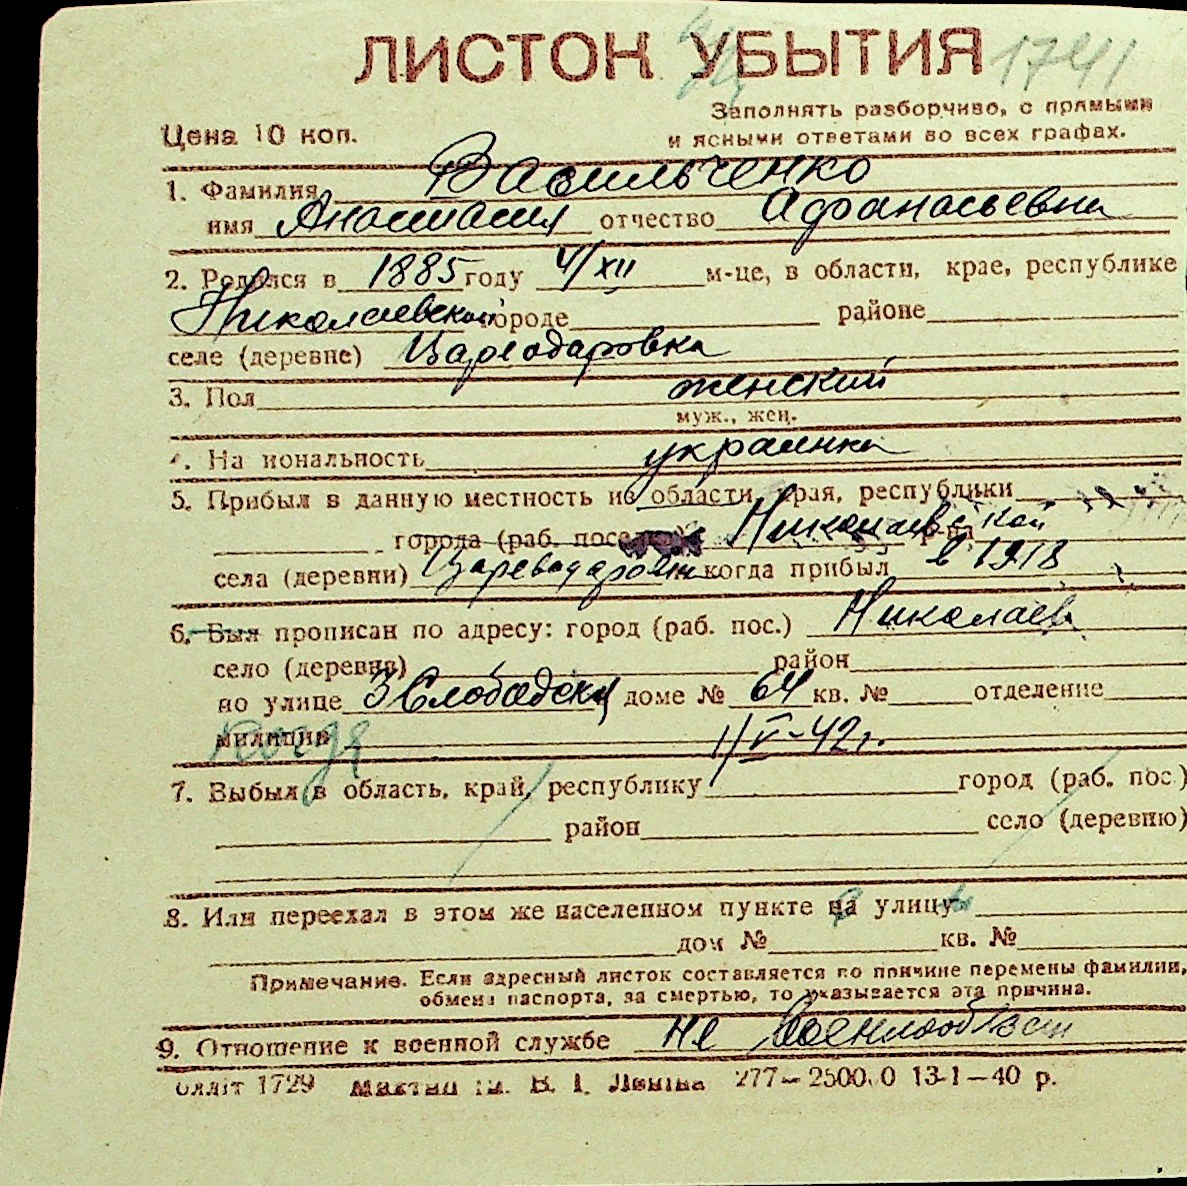 ЛИСТОК УБЫТИЯ 1741
Заполнять разборчиво, с прямыми
Цена 10 коп.
и ясными ответами во всех графах.
1. Фамилия Васильченко
имя Анастасия отчество Афанасьевна
2. Родился в 1885 году 4/XII м-це, в области, крае, республике
Николаевской городе районе
селе (деревне) Царедаровка
3. Пол женский
муж., жен.
4. Национальность украинка
5. Прибыл в данную местность из области, края, республики
города (раб. поселка) Николаевской р-на
села (деревни) Цареводаровки когда прибыл в 1918
6. Был прописан по адресу: город (раб. пос.) Николаев
село (деревня) район
по улице 3 Слободская доме № 64 кв. № отделение
милиции 1/V-42 г.
7. Выбыл в область, край, республику город (раб. пос.)
район село (деревню)
8. Или переехал в этом же населенном пункте на улицу
дом № кв. №
Примечание. Если адресный листок составляется по причине перемены фамилии,
обмена паспорта, за смертью, то указывается эта причина.
9. Отношение к военной службе не военнообяз
1729 В. І. Леніна 277—2500.0 13-1—40 р.